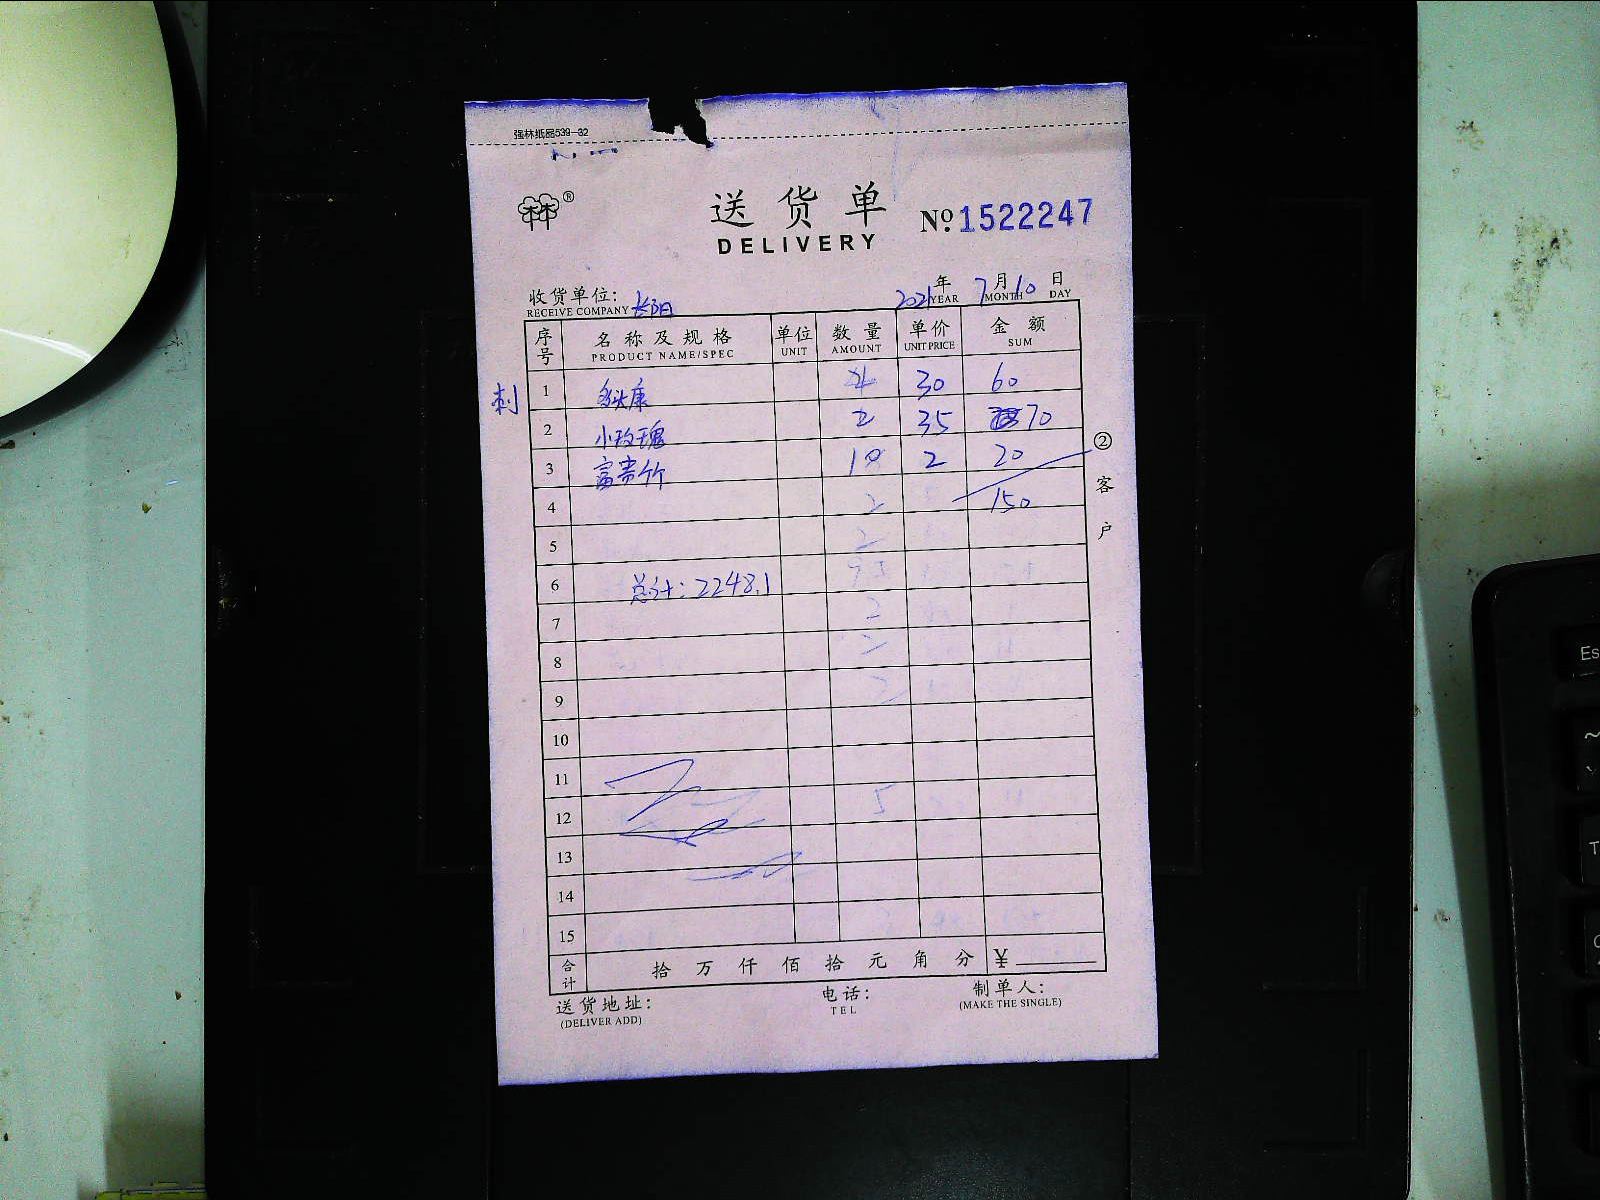 强林纸品539-32
林®
送货单 №1522247
DELIVERY
收货单位: 长阳 2021年 7月 10日
RECEIVE COMPANY YEAR MONTH DAY
序号 名称及规格 单位 数量 单价 金额
PRODUCT NAME/SPEC UNIT AMOUNT UNIT PRICE SUM
刺
1 30 60
2 小玫瑰 2 35 70
3 富贵竹 10 2 20
4 2 150
5 2
6 总计:2248.1
7 2
8
9 2
10
11
12 5
13
14
15
②客户
合计 拾 万 仟 佰 拾 元 角 分 ¥
送货地址: 电话: 制单人:
(DELIVER ADD) TEL (MAKE THE SINGLE)
Es
T